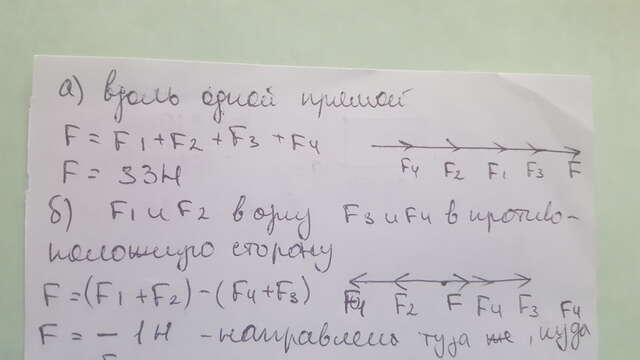 а) вдоль одной прямой
F = F1 + F2 + F3 + F4
F4 F2 F1 F3 F
F = 33Н
б) F1 и F2 в одну F3 и F4 в противо-
положную сторону
F = (F1 + F2) - (F4 + F3)
F2 F F4 F3 F4
F = - 1Н - направлены туда же, куда